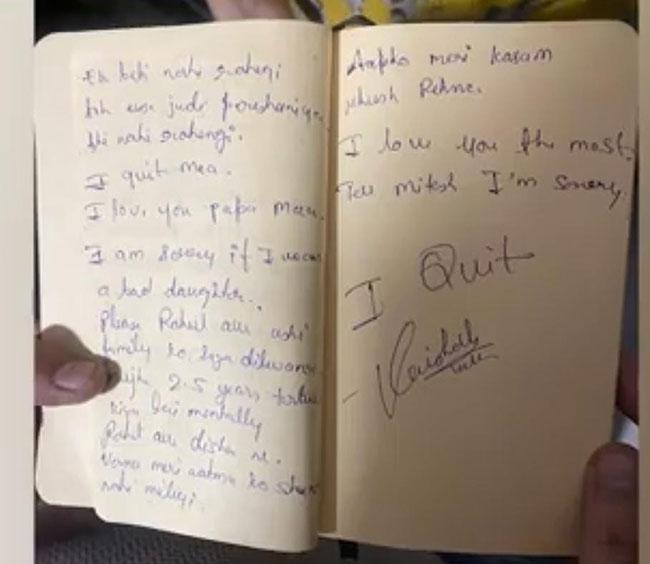 Ek beti nahi rahegi
toh use judi poushaniya
bhi nahi rahengi.
I quit maa.
I love you papa maa.
I am sorry if I was
a bad daughter..
Please Rahul aur uski
family ko saja dilwana
Mujhe 2.5 years torture
kiya hai mentally
Rahul aur disha ne.
Varna meri aatma ko
nahi milegi.
Aapko meri kasam
khush Rehna.
I love you the most.
Tell mitesh I'm sorry.
I Quit